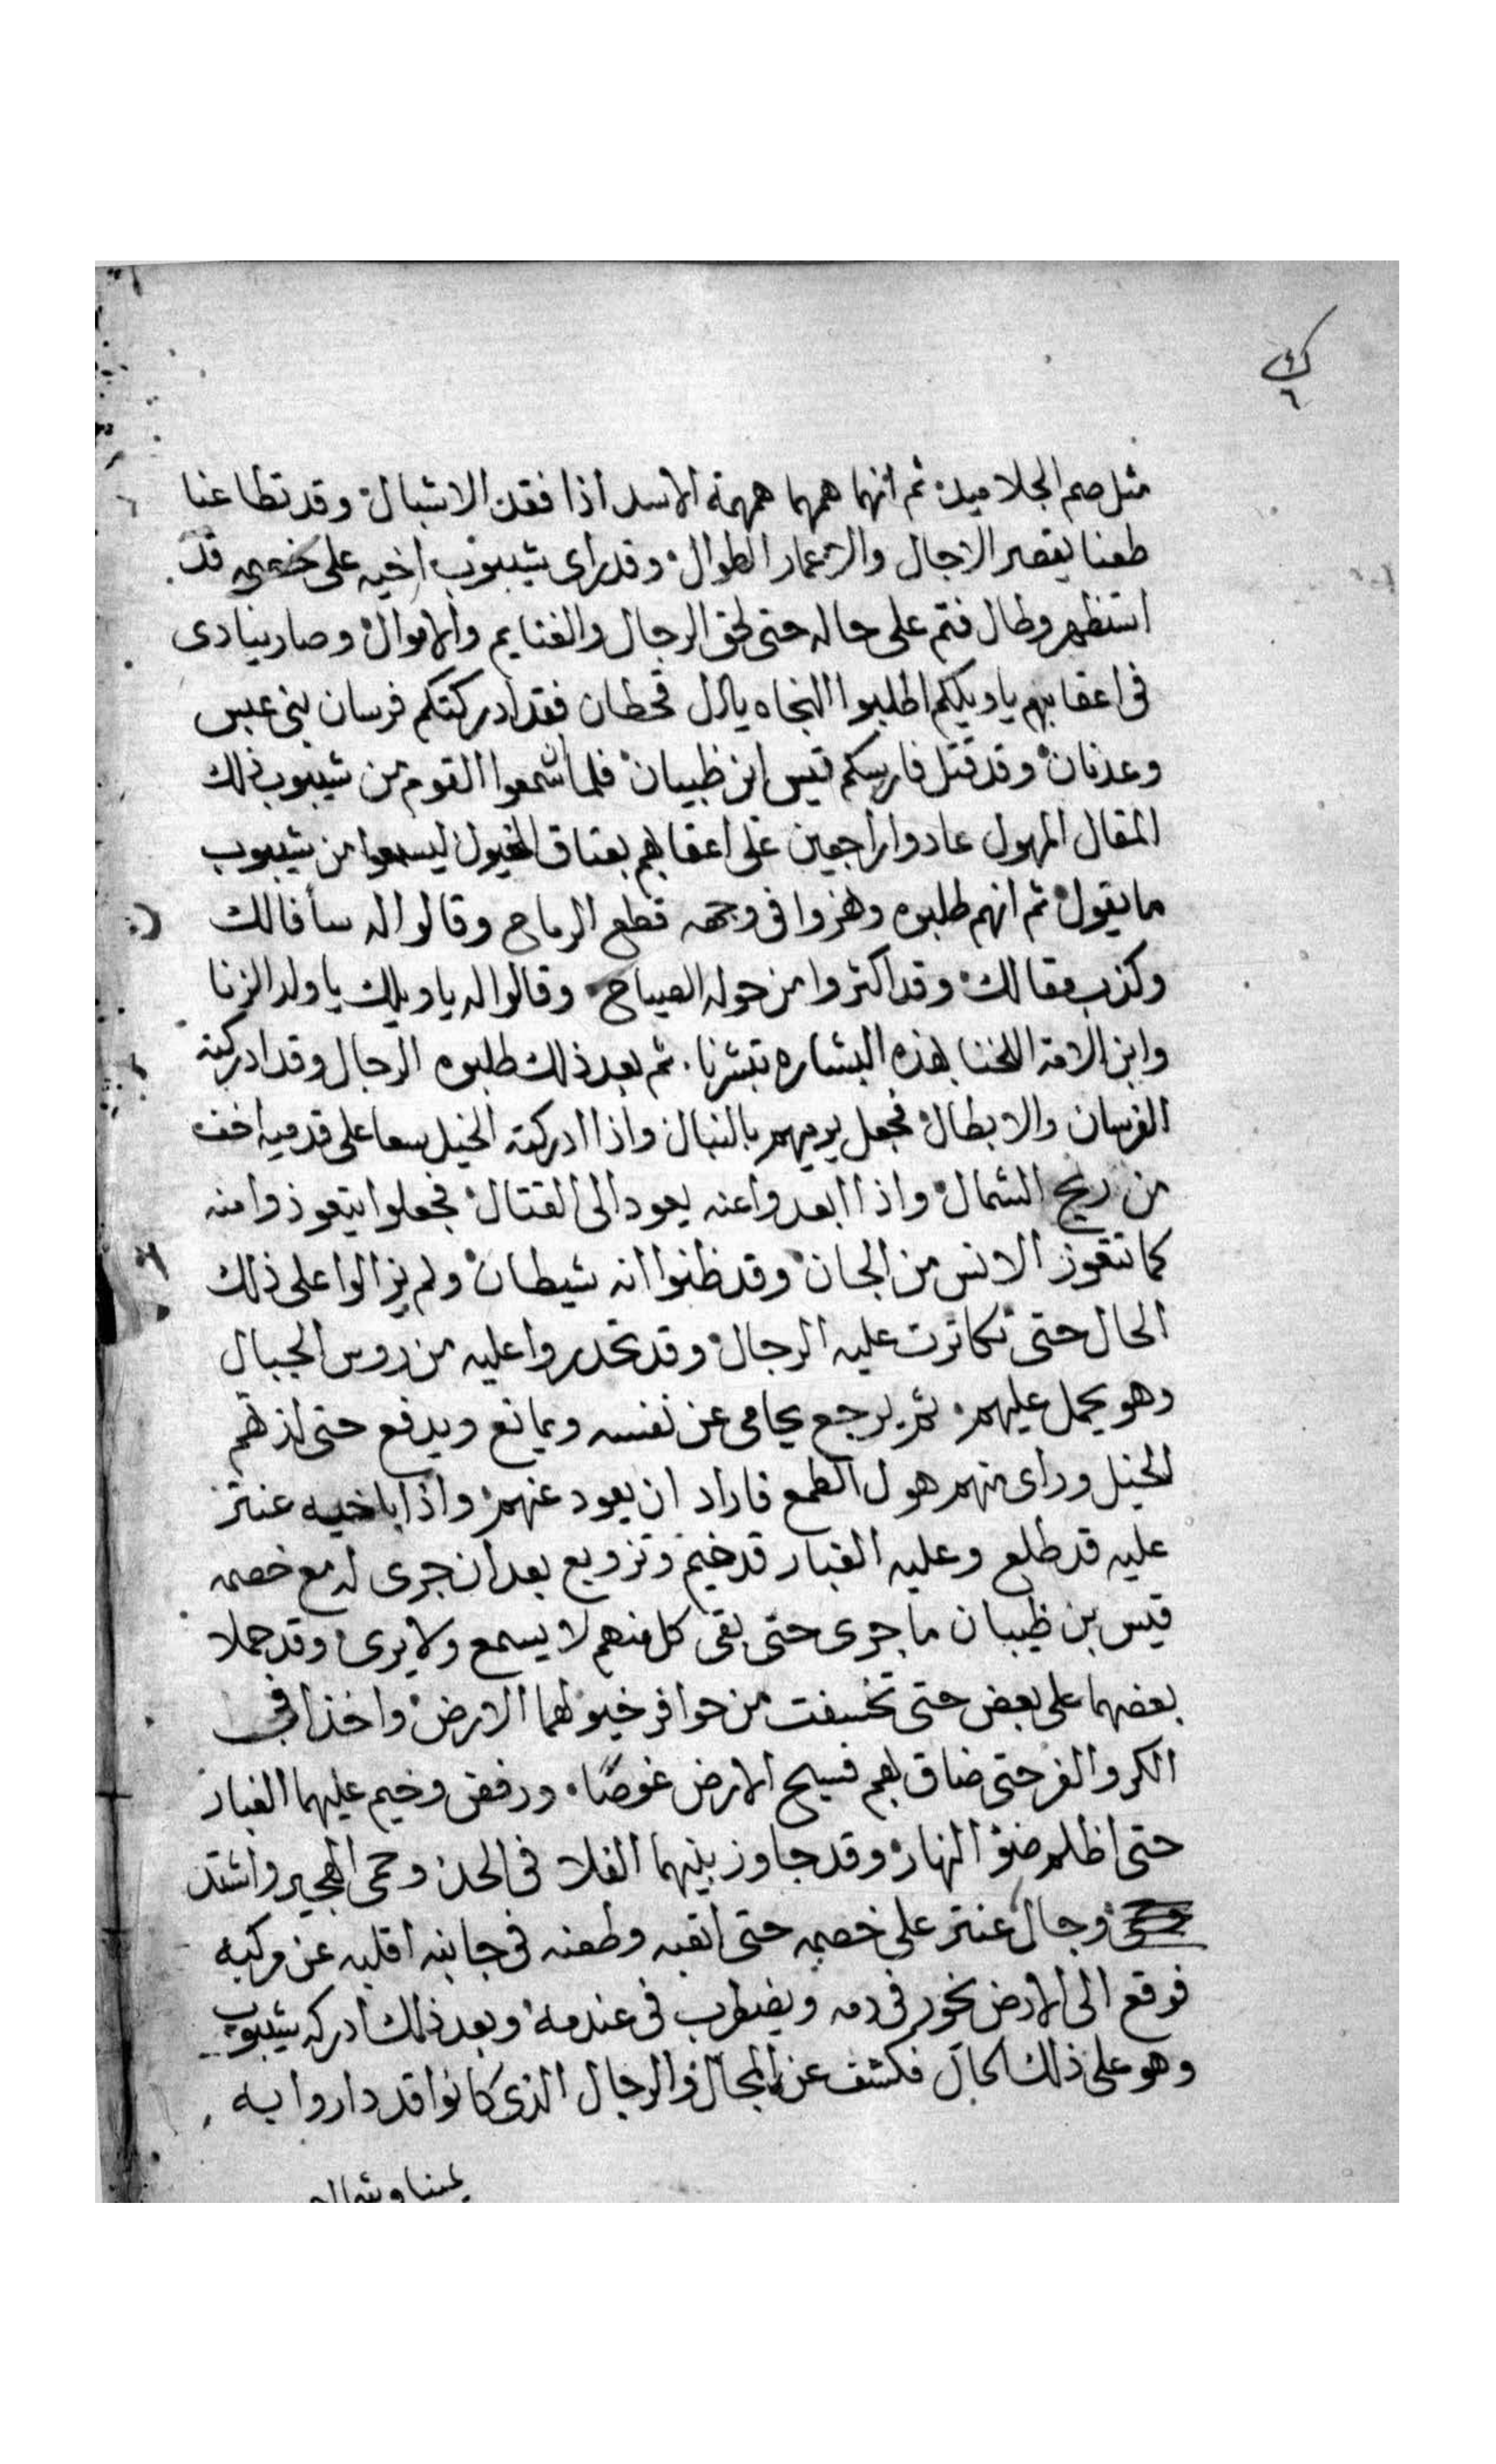 مثل صم الجلاميد ثم انهما همهما همهمة الاسد اذا فقد الاشبال وقد تطاعنا
طعنا يقصر الاجال والاعمار الطوال وقد راى شيبوب اخيه على خصمه قد
استظهر وطال فتم على حاله حتى لحق الرجال والغنايم والاموال وصار ينادى
فى اعقابهم يا ويلكم اطلبوا النجاه يا ال قحطان فقد ادركتكم فرسان بنى عبس
وعدنان وقد قتل فارسكم قيس ابن ظبيان فلما سمعوا القوم من شيبوب ذلك
المقال المهول عادوا راجعين على اعقابهم بعتاق الخيول ليسمعوا من شيبوب
ما يقول ثم انهم طلبوه وهزوا فى وجهه قطع الرماح وقالوا له سأ فالك
وكذب مقالك وقد اكثروا من حوله الصياح وقالوا له يا ويلك يا ولد الزنا
وابن الامة اللخنا بهذه البشاره تبشرنا ثم بعد ذلك طلبوه الرجال وقد ادركته
الفرسان والابطال فجعل يرميهم بالنبال واذا ادركته الخيل سعا على قدميه اخف
من ريح الشمال واذا ابعدوا عنه يعود الى القتال فجعلوا يتعوذوا منه
كما تتعوز الانس من الجان وقد ظنوا انه شيطان ولم يزالوا على ذلك
الحال حتى تكاترت عليه الرجال وقد تحدروا عليه من روس الجبال
وهو يحمل عليهم ثم يرجع يحامى عن نفسه ويمانع ويدفع حتى
الخيل وراى منهم هول الطمع فاراد ان يعود عنهم واذا باخيه عنتر
عليه قد طلع وعليه الغبار قد خيم وتزوبع بعد ان جرى له مع خصمه
قيس بن ظبيان ما جرى حتى بقى كل منهم لا يسمع ولا يرى وقد حملا
بعضهما على بعض حتى تخسفت من حوافر خيولهما الارض واخذا فى
الكر والفر حتى ضاق بهم فسيح الارض ورفض وخيم عليهما الغبار
حتى اظلم ضوء النهار وقد جاوز بينهما الفلا فى الحد وحمى الهجير واشتد
وجال عنتر على خصمه حتى اتعبه وطعنه فى جانبه اقلبه عن مركبه
فوقع الى الارض يخور فى دمه ويضطرب فى عندمه وبعد ذلك ادركه شيبوب
وهو على ذلك الحال فكشف عن المجال والرجال الذى كانوا قد داروا به
يمينا وشمال